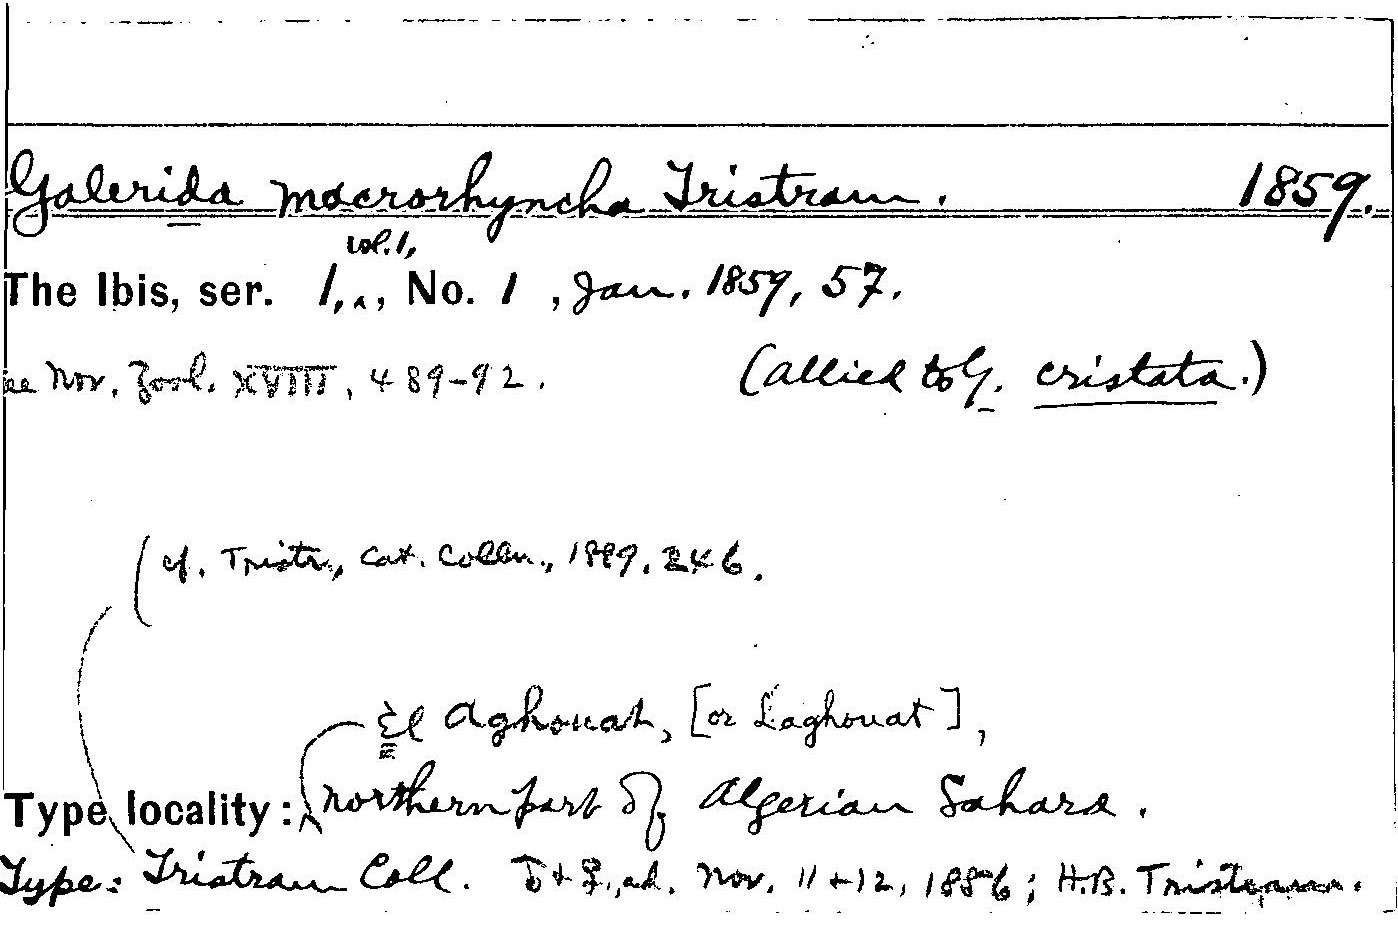 Galerida macrorhyncha Tristram. 1859.
vol. 1,
The Ibis, ser. 1, ^, No. 1, Jan. 1859, 57.
ee Nov. Zool. XVIII, 489-92. (allied to G. cristata.)
(cf. Tristr., Cat. Colln., 1889, 246.
El Aghouat, [or Laghouat],
Type locality: northern part of Algerian Sahara.
Type: Tristram Coll. ♂ + ♀, ad. Nov. 11 + 12, 1856; H.B. Tristram.